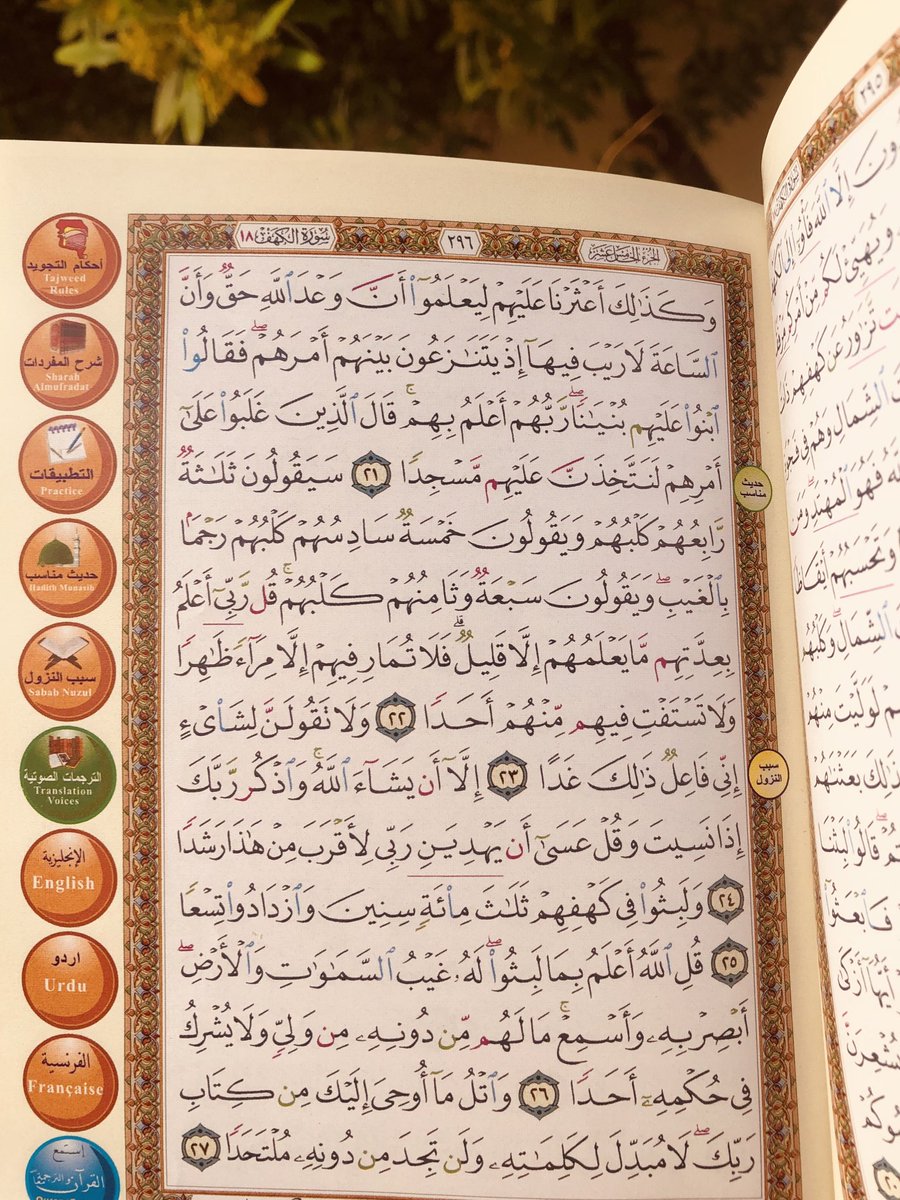 أحكام التجويد
Tajweed
Rules
شرح المفردات
Sharah
Almufradat
التطبيقات
Practice
حديث مناسب
Hadith Munasib
سبب النزول
Sabab Nuzul
الترجمات الصوتية
Translation
Voices
الإنجليزية
English
اردو
Urdu
الفرنسية
Française
إستمع
الجزء الخامس عشر ٢٩٦ سورة الكهف ١٨
وَكَذَٰلِكَ أَعۡثَرۡنَا عَلَيۡهِمۡ لِيَعۡلَمُوٓاْ أَنَّ وَعۡدَ ٱللَّهِ حَقّٞ وَأَنَّ
ٱلسَّاعَةَ لَا رَيۡبَ فِيهَآ إِذۡ يَتَنَٰزَعُونَ بَيۡنَهُمۡ أَمۡرَهُمۡۖ فَقَالُواْ
ٱبۡنُواْ عَلَيۡهِم بُنۡيَٰنٗاۖ رَّبُّهُمۡ أَعۡلَمُ بِهِمۡۚ قَالَ ٱلَّذِينَ غَلَبُواْ عَلَىٰٓ
أَمۡرِهِمۡ لَنَتَّخِذَنَّ عَلَيۡهِم مَّسۡجِدٗا ٢١ سَيَقُولُونَ ثَلَٰثَةٞ
رَّابِعُهُمۡ كَلۡبُهُمۡ وَيَقُولُونَ خَمۡسَةٞ سَادِسُهُمۡ كَلۡبُهُمۡ رَجۡمَۢا
بِٱلۡغَيۡبِۖ وَيَقُولُونَ سَبۡعَةٞ وَثَامِنُهُمۡ كَلۡبُهُمۡۚ قُل رَّبِّيٓ أَعۡلَمُ
بِعِدَّتِهِم مَّا يَعۡلَمُهُمۡ إِلَّا قَلِيلٞۗ فَلَا تُمَارِ فِيهِمۡ إِلَّا مِرَآءٗ ظَٰهِرٗا
وَلَا تَسۡتَفۡتِ فِيهِم مِّنۡهُمۡ أَحَدٗا ٢٢ وَلَا تَقُولَنَّ لِشَاْيۡءٍ
إِنِّي فَاعِلٞ ذَٰلِكَ غَدًا ٢٣ إِلَّآ أَن يَشَآءَ ٱللَّهُۚ وَٱذۡكُر رَّبَّكَ
إِذَا نَسِيتَ وَقُلۡ عَسَىٰٓ أَن يَهۡدِيَنِ رَبِّي لِأَقۡرَبَ مِنۡ هَٰذَا رَشَدٗا
٢٤ وَلَبِثُواْ فِي كَهۡفِهِمۡ ثَلَٰثَ مِاْئَةٖ سِنِينَ وَٱزۡدَادُواْ تِسۡعٗا
٢٥ قُلِ ٱللَّهُ أَعۡلَمُ بِمَا لَبِثُواْۖ لَهُۥ غَيۡبُ ٱلسَّمَٰوَٰتِ وَٱلۡأَرۡضِۖ
أَبۡصِرۡ بِهِۦ وَأَسۡمِعۡۚ مَا لَهُم مِّن دُونِهِۦ مِن وَلِيّٖ وَلَا يُشۡرِكُ
فِي حُكۡمِهِۦٓ أَحَدٗا ٢٦ وَٱتۡلُ مَآ أُوحِيَ إِلَيۡكَ مِن كِتَابِ
رَبِّكَۖ لَا مُبَدِّلَ لِكَلِمَٰتِهِۦ وَلَن تَجِدَ مِن دُونِهِۦ مُلۡتَحَدٗا ٢٧
حديث
مناسب
سبب
النزول
٢٩٥
إِلَّا ٱللَّهَ فَأۡوُۥٓاْ إِلَى
وَيُهَيِّئۡ لَكُم مِّنۡ أَمۡرِكُم
تَّزَٰوَرُ عَن كَهۡفِهِمۡ ذَاتَ
ٱلشِّمَالِ وَهُمۡ فِي
فَهُوَ ٱلۡمُهۡتَدِۖ وَمَن
وَتَحۡسَبُهُمۡ أَيۡقَاظٗا
ٱلشِّمَالِۖ وَكَلۡبُهُم
لَوَلَّيۡتَ مِنۡهُمۡ
بَعَثۡنَٰهُمۡ
قَالُواْ لَبِثۡنَا
فَٱبۡعَثُوٓاْ
أَيُّهَآ أَزۡكَىٰ